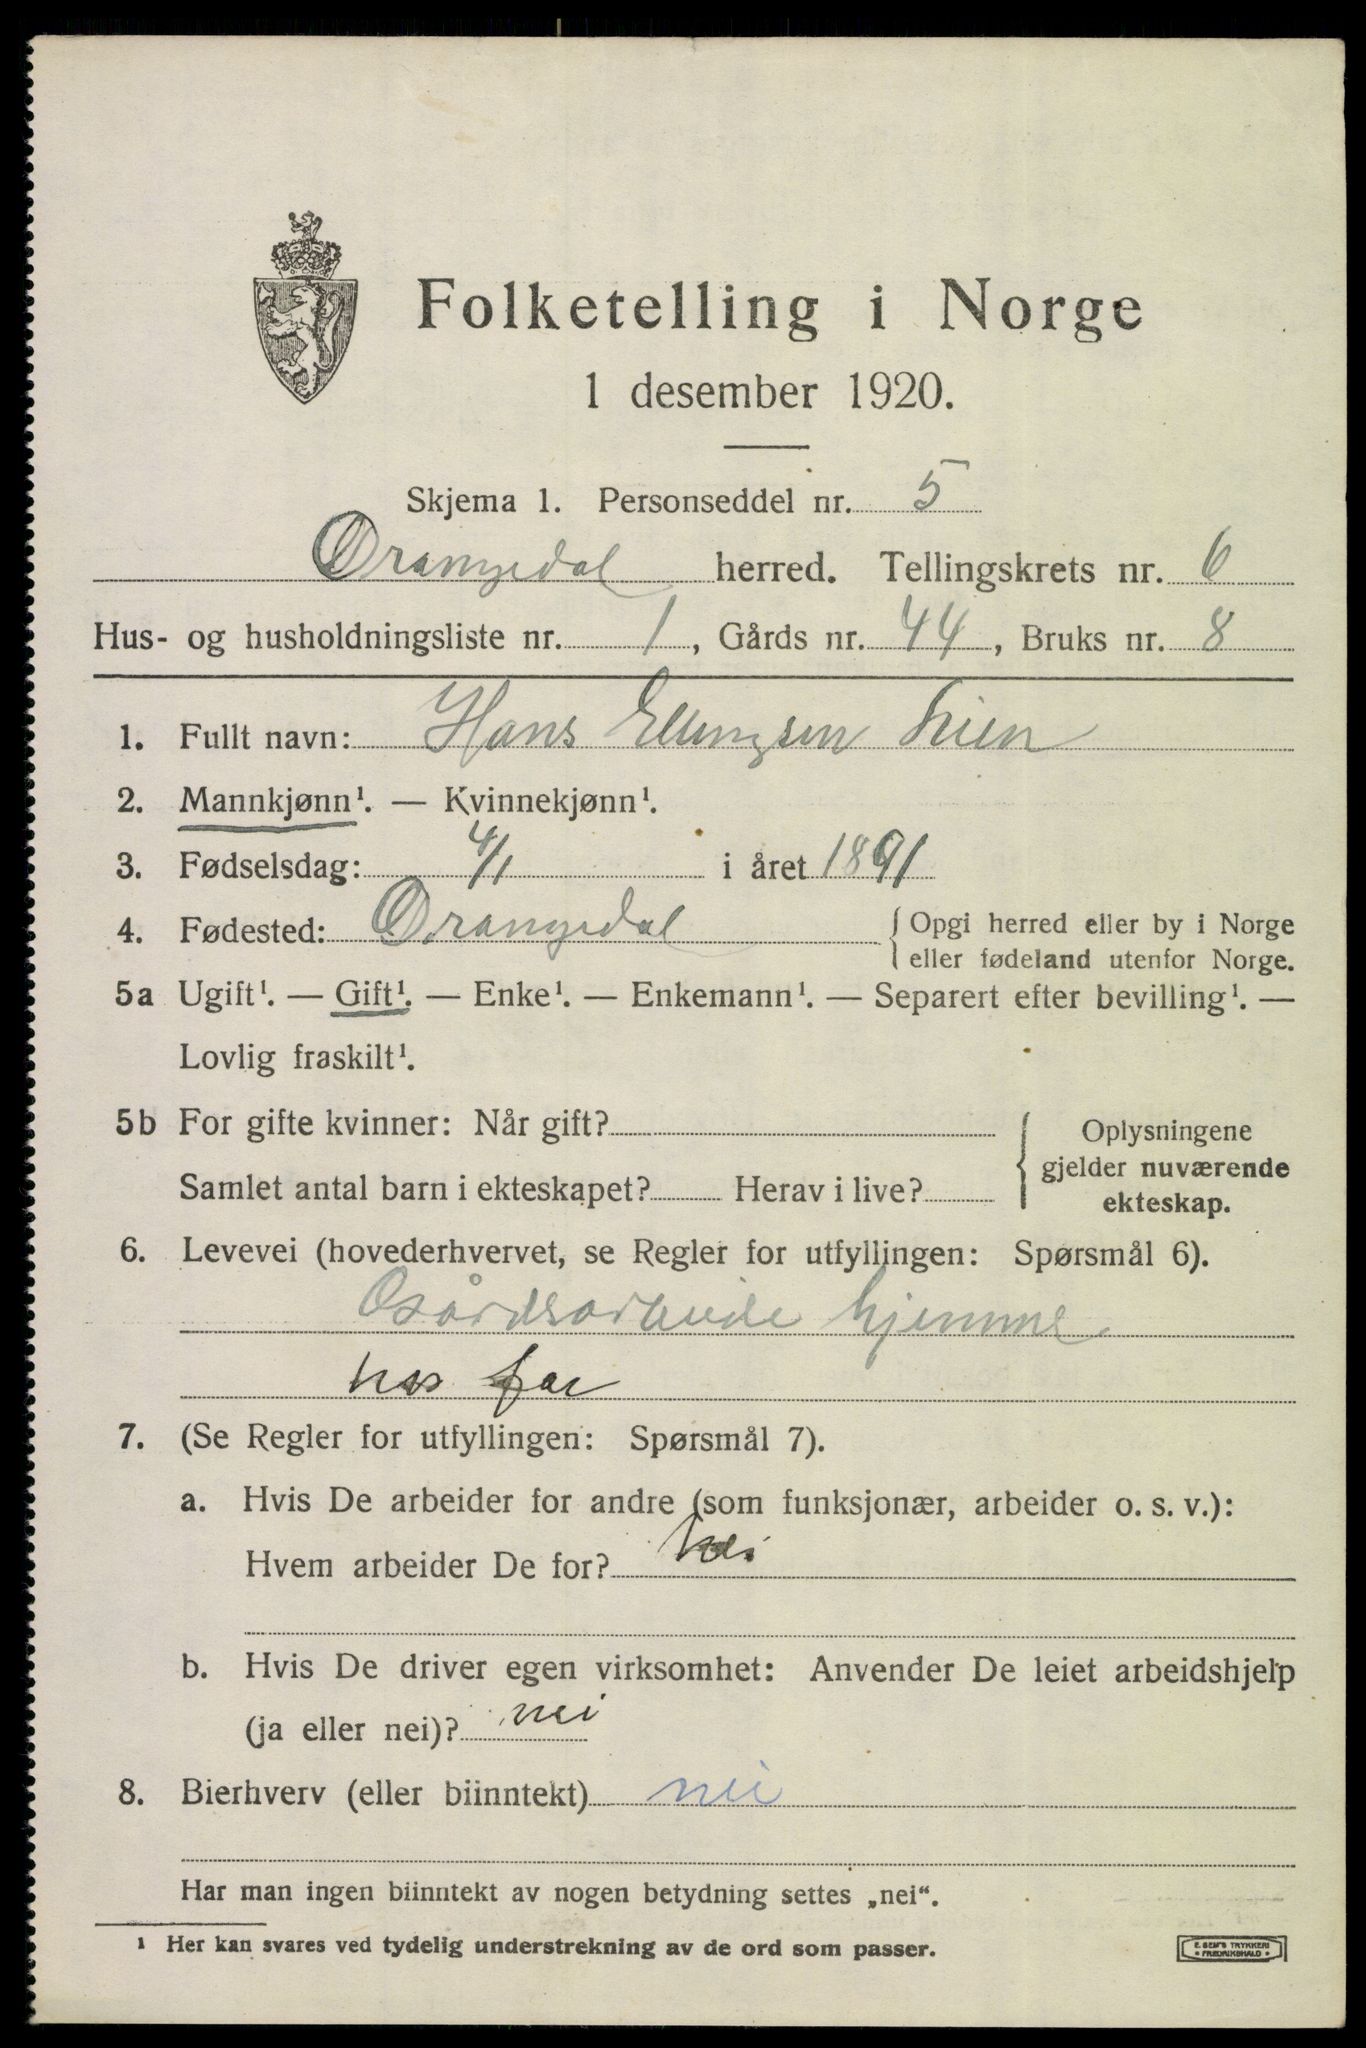 Folketelling i Norge
1 desember 1920.
Skjema 1. Personseddel nr. 5
Drangedal herred. Tellingskrets nr. 6
Hus- og husholdningsliste nr. 1, Gårds nr. 44, Bruks nr. 8
1. Fullt navn: Hans Ellingsen Lien
2. Mannkjønn¹. — Kvinnekjønn¹.
3. Fødselsdag: 4/1 i året 1891
4. Fødested: Drangedal { Opgi herred eller by i Norge
eller fødeland utenfor Norge.
5a Ugift¹. — Gift¹. — Enke¹. — Enkemann¹. — Separert efter bevilling¹. —
Lovlig fraskilt¹.
5b For gifte kvinner: Når gift?
Samlet antal barn i ekteskapet? Herav i live?
{ Oplysningene
gjelder nuværende
ekteskap.
6. Levevei (hovederhvervet, se Regler for utfyllingen: Spørsmål 6).
Gårdsarbeide hjemme
hos far
7. (Se Regler for utfyllingen: Spørsmål 7).
a. Hvis De arbeider for andre (som funksjonær, arbeider o. s. v.):
Hvem arbeider De for? nei
b. Hvis De driver egen virksomhet: Anvender De leiet arbeidshjelp
(ja eller nei)? nei
8. Bierhverv (eller biinntekt) nei
Har man ingen biinntekt av nogen betydning settes „nei“.
¹ Her kan svares ved tydelig understrekning av de ord som passer.
E. SEM'S TRYKKERI
FREDRIKSHALD